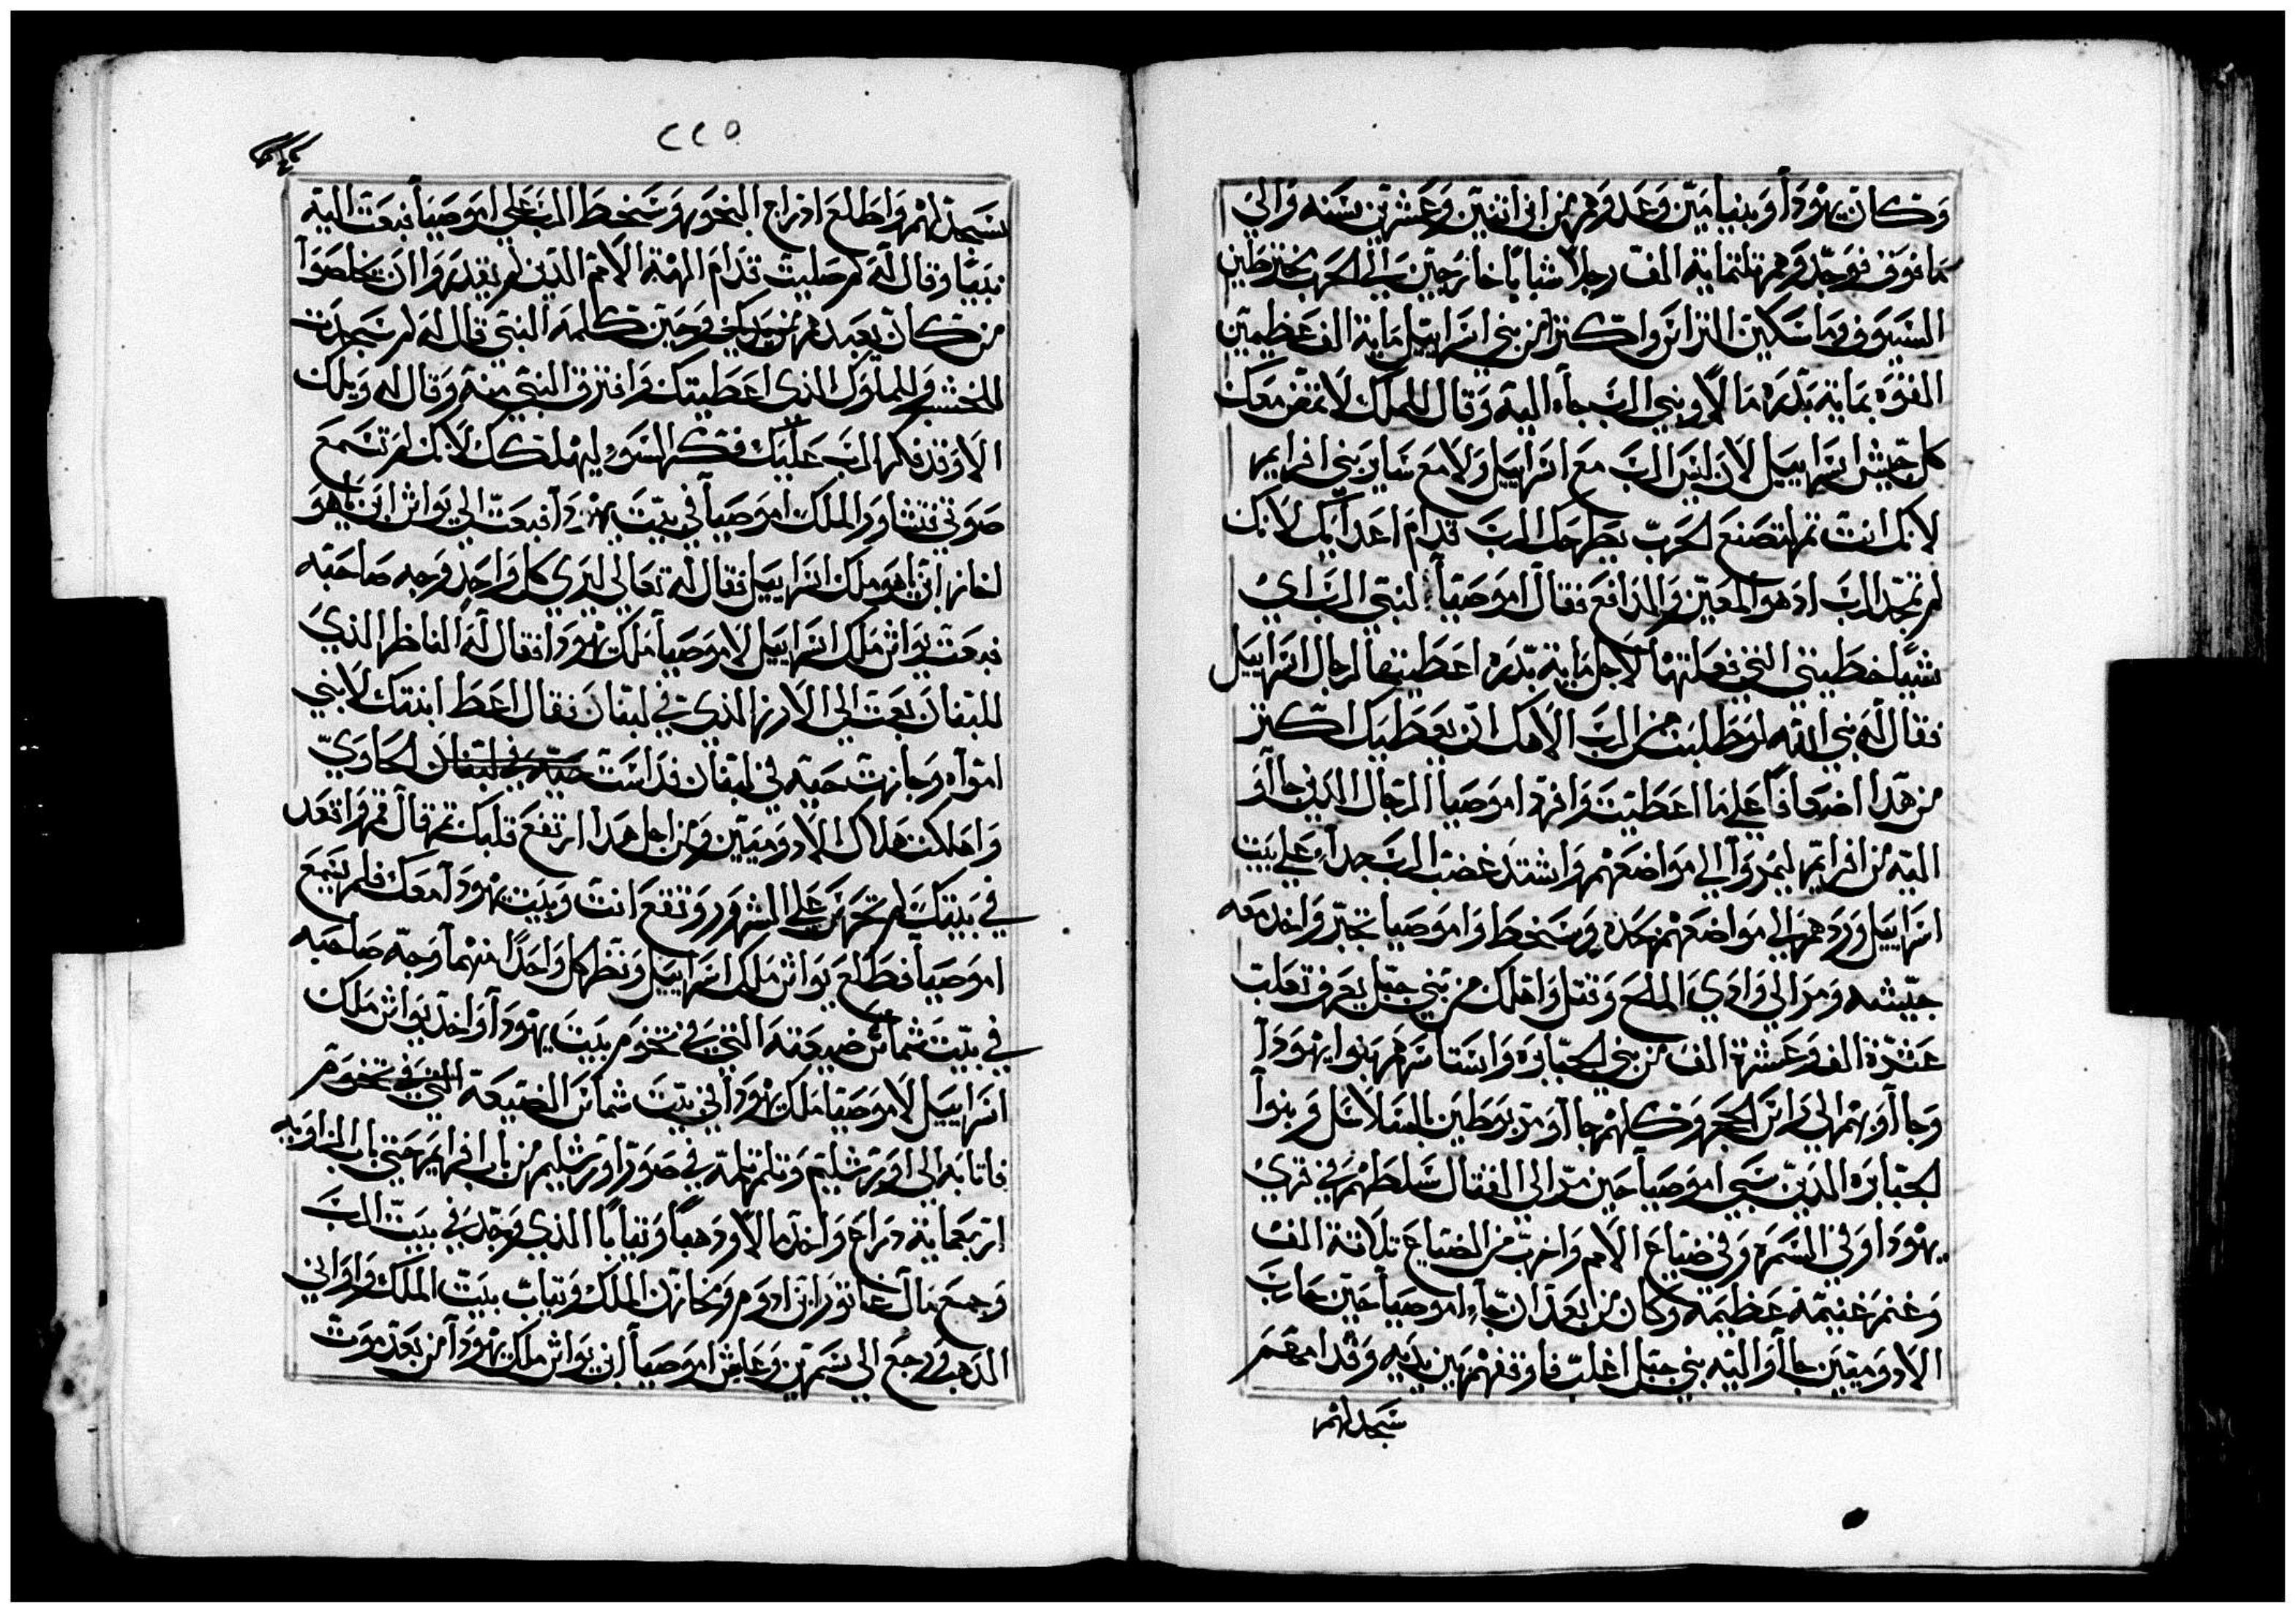 وكان يهودا وبنيامين وعدوهم من ابن اثنين وعشرين سنه والي
ما فوق فوجدوهم تلتماية الف رجلا شبابا خارجين الي الحرب مخترطين
السيوف وماسكين التراس واكترا من بني اسراييل ماية الف عظيمين
القوه بماية بدره مالا ونبي الرب جاء اليه وقال للملك لا تمض معك
كل جيش اسراييل لان ليس الرب مع اسراييل ولا مع ساير بني افرايم
لانك انت تمر لتصنع الحرب يطرحك الرب قدام اعدايك لانك
لم تمجد الرب اد هو المعين والدافع فقال اموصيا لنبي الرب اي
شيا خطيتي التي فعلتها لاجل ماية بدره اعطيتها لرجال اسراييل
فقال له نبي الله لو طلبت من الرب الاهك ان يعطيك اكتر
من هدا اضعافا علي ما اعطيت وافرد اموصيا الرجال الدين جاآو
اليه من افرايم ليمروا الي مواضعهم واشتد غضب الرب جدا علي بيت
اسراييل وردهم الي مواضعهم بحده وسخط واموصيا تجبر واخد معه
جيشه ومر الي وادي الملح وقتل واهلك من بني جبل يعرف تعلب
عشرة الف وعشرة الف من بني الجبابره واستاسرهم بنوا يهودا
وجاآو بهم الي راس الحجر وكلهم جاآو مربوطين بالسلاسل وبنوا
الجبابره الدين سبي اموصيا حين مر الي القتال سلطهم في قري
يهودا وفي السمره وفي ضياع الامم واخرب من الضياع تلاتة الف
وغنم غنيمة عظيمة وكان من بعد ان جاء اموصيا حين حارب
الادوميين جاآو اليه بني جبل اغلب فاوقفهم بين يديه وقدامهم
سجد لهم
٢٢٥
سجد لهم واطلع ادراج البخور وسخط الرب علي اموصيا فبعت اليه
نبيا وقال له لم صليت قدام الهة الامم الدين لم يقدروا ان يخلصوا
من كان يعبدهم من يديك وحين كلمه النبي قال له لم سجدت
للخشب والملوك الدي اعطيتك وافترق النبي منه وقال له ويلك
الا وقد فكر الرب عليك فكر السو ليهلكك لانك لم تسمع
صوتي فتشاور الملك اموصيا في بيت يهودا فبعت الي يواش ابن ياهو
اخاز ابن ياهو ملك اسراييل فقال له تعالي ليري كل واحد وجه صاحبه
فبعت يواش ملك اسراييل لاموصيا ملك يهودا فقال له الناظر الدي
للبنان بعت الي الارز الدي في لبنان فقال اعط ابنتك لابني
امراه وجازت حيه في لبنان فداست حيه في لبنان الحاوي
واهلكت هلاك الادوميين ومن اجل هدا ارتفع قلبك تم قال قم واقعد
في بيتك لم تحرص علي الشرور وتقع انت وبيت يهودا معك فلم يسمع
اموصيا فطلع يواش ملك اسراييل ونظر كل واحدا منهما وجه صاحبه
في بيت شماس ضيعته التي في تخوم بيت يهودا واخد يواش ملك
اسراييل لاموصيا ملك يهودا في بيت شماس الضيعة التي في تخوم
فاتا به الي اورشليم وتلم تلمه في صور اورشليم من باب افرايم حتي باب الزاويه
اربعماية دراع واخد مالا ودهبا وتيابا الدي وجد في بيت الرب
وجميع مال عاتور ابن ادوم وخازن الملك وتياب بيت الملك واواني
الدهب ورجع الي سمرين وعاش اموصيا ابن يواش ملك يهودا من بعد موت